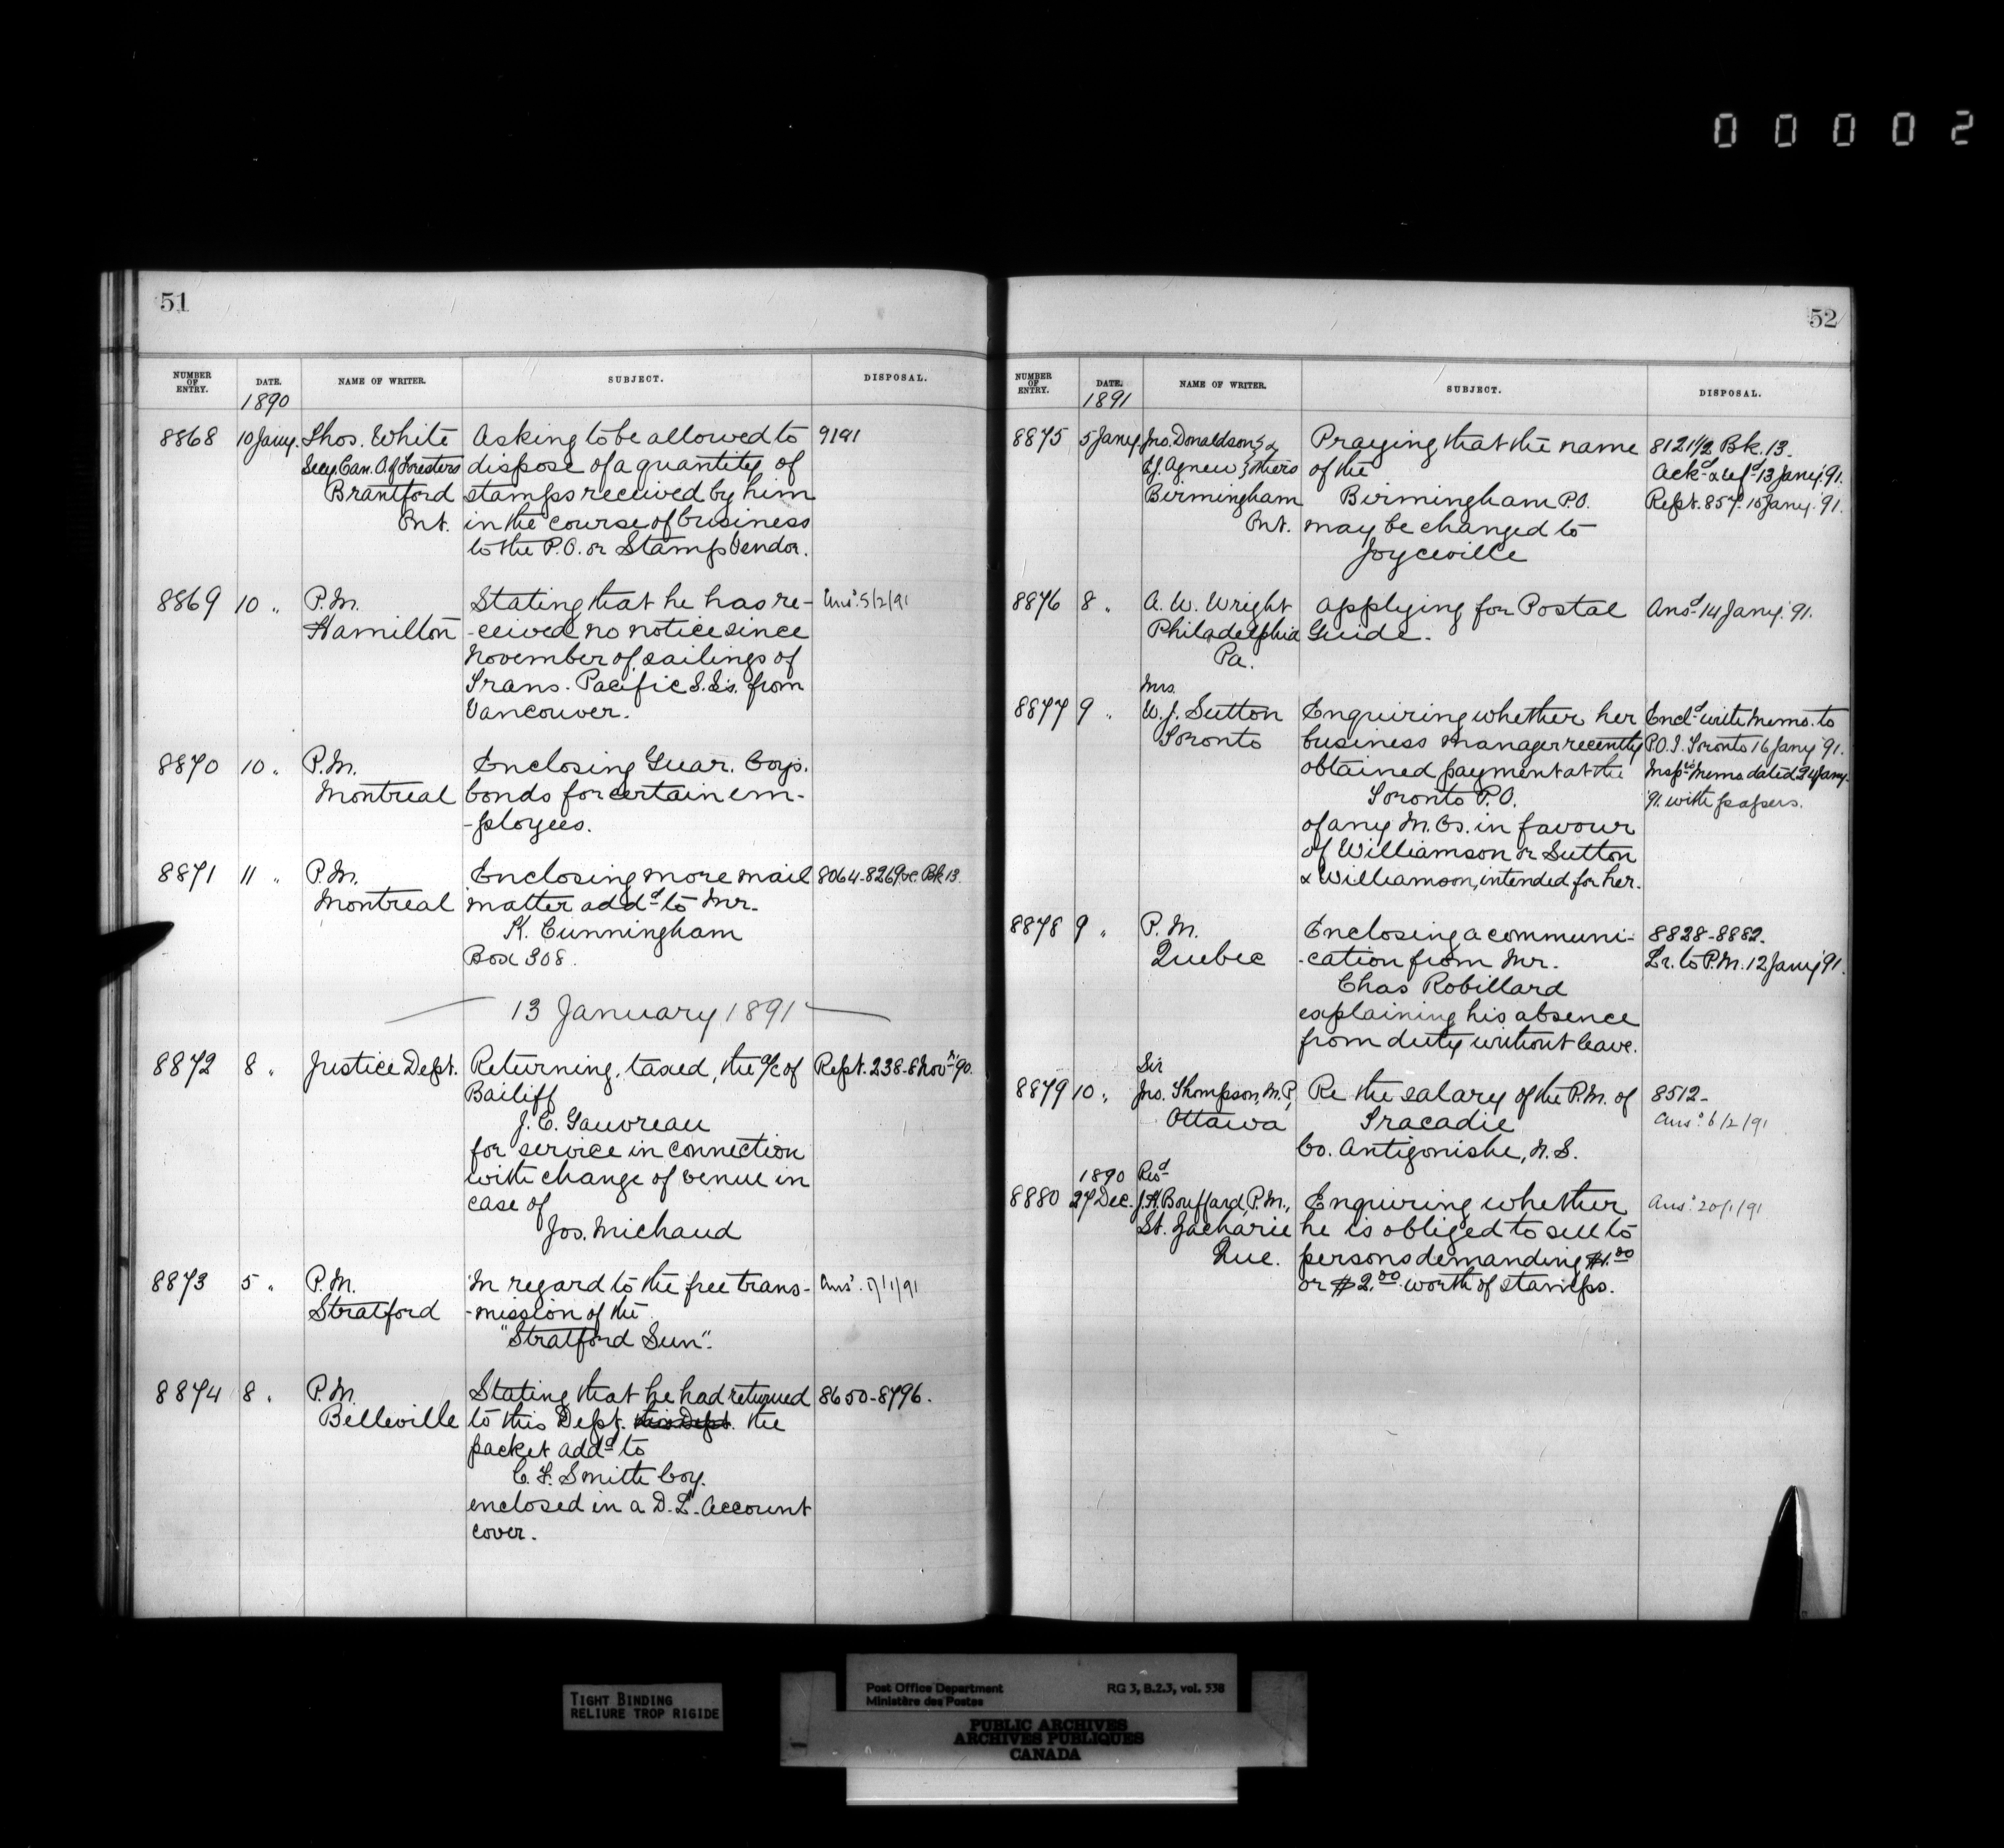 00002
51
NUMBER OF ENTRY. DATE. NAME OF WRITER. SUBJECT. DISPOSAL.
1890
8868 10 Jany. Thos. White Asking to be allowed to 9191
Secy Can. O. of Foresters dispose of a quantity of
Brantford stamps received by him
Ont. in the course of business
to the P.O. or Stamp Vendor.
8869 10 " P.M. Stating that he has re- Ansd. 5/2/91
Hamilton -ceived no notice since
November of sailings of
Trans. Pacific S.S's. from
Vancouver.
8870 10 " P.M. Enclosing Guar. Coy's.
Montreal bonds for certain em-
-ployees.
8871 11 " P.M. Enclosing more mail 8064-8269 &c. Bk 13.
Montreal matter addd to Mr.
K. Cunningham
Box 308.
13 January 1891
8872 8 " Justice Dept. Returning, taxed, the a/c of Rept. 238-8 Novr '90.
Bailiff
J. E. Gauvreau
for service in connection
with change of venue in
case of
Jos. Michaud
8873 5 " P.M. In regard to the free trans- Ansd. /1/91
Stratford -mission of the
"Stratford Sun".
8874 8 " P.M. Stating that he had returned 8650-8796.
Belleville to this Dept. this Dept. the
packet addd to
C. F. Smith Coy.
enclosed in a D.L. Account
cover.
52
NUMBER OF ENTRY. DATE. NAME OF WRITER. SUBJECT. DISPOSAL.
1891
8875 5 Jany. Jno. Donaldson & Praying that the name 8121½ Bk. 13.
Agnew others of the Ackd & refd 13 Jany. '91.
Birmingham Birmingham P.O. Rept. 857. 15 Jany. '91.
Ont. may be changed to
Joyceville
8876 8 " A. W. Wright Applying for Postal Ansd 14 Jany. '91.
Philadelphia Guide.
Pa.
Mrs.
8877 9 " W. J. Sutton Enquiring whether her Encd with Memo. to
Toronto business manager recently P.O.I. Toronto 16 Jany '91.
obtained payment at the Inspr's Memo dated 24 Jany.
Toronto P.O. '91. with papers.
of any M.Os. in favour
of Williamson or Sutton
& Williamson, intended for her.
8878 9 " P.M. Enclosing a communi- 8828-8882.
Quebec -cation from Mr. Lr. to P.M. 12 Jany '91.
Chas Robillard
explaining his absence
from duty without leave.
Sir
8879 10 " Jno. Thompson, M.P., Re the salary of the P.M. of 8512-
Ottawa Tracadie Ansd. 6/2/91
Co. Antigonishe, N.S.
1890 Revd
8880 27 Dec. J. H. Bouffard, P.M., Enquiring whether Ansd. 20/1/91
St. Zacharie he is obliged to sell to
Que. persons demanding $1.00
or $2.00 worth of stamps.
TIGHT BINDING
RELIURE TROP RIGIDE
Post Office Department RG 3, B.2.3, vol. 538
Ministère des Postes
PUBLIC ARCHIVES
ARCHIVES PUBLIQUES
CANADA